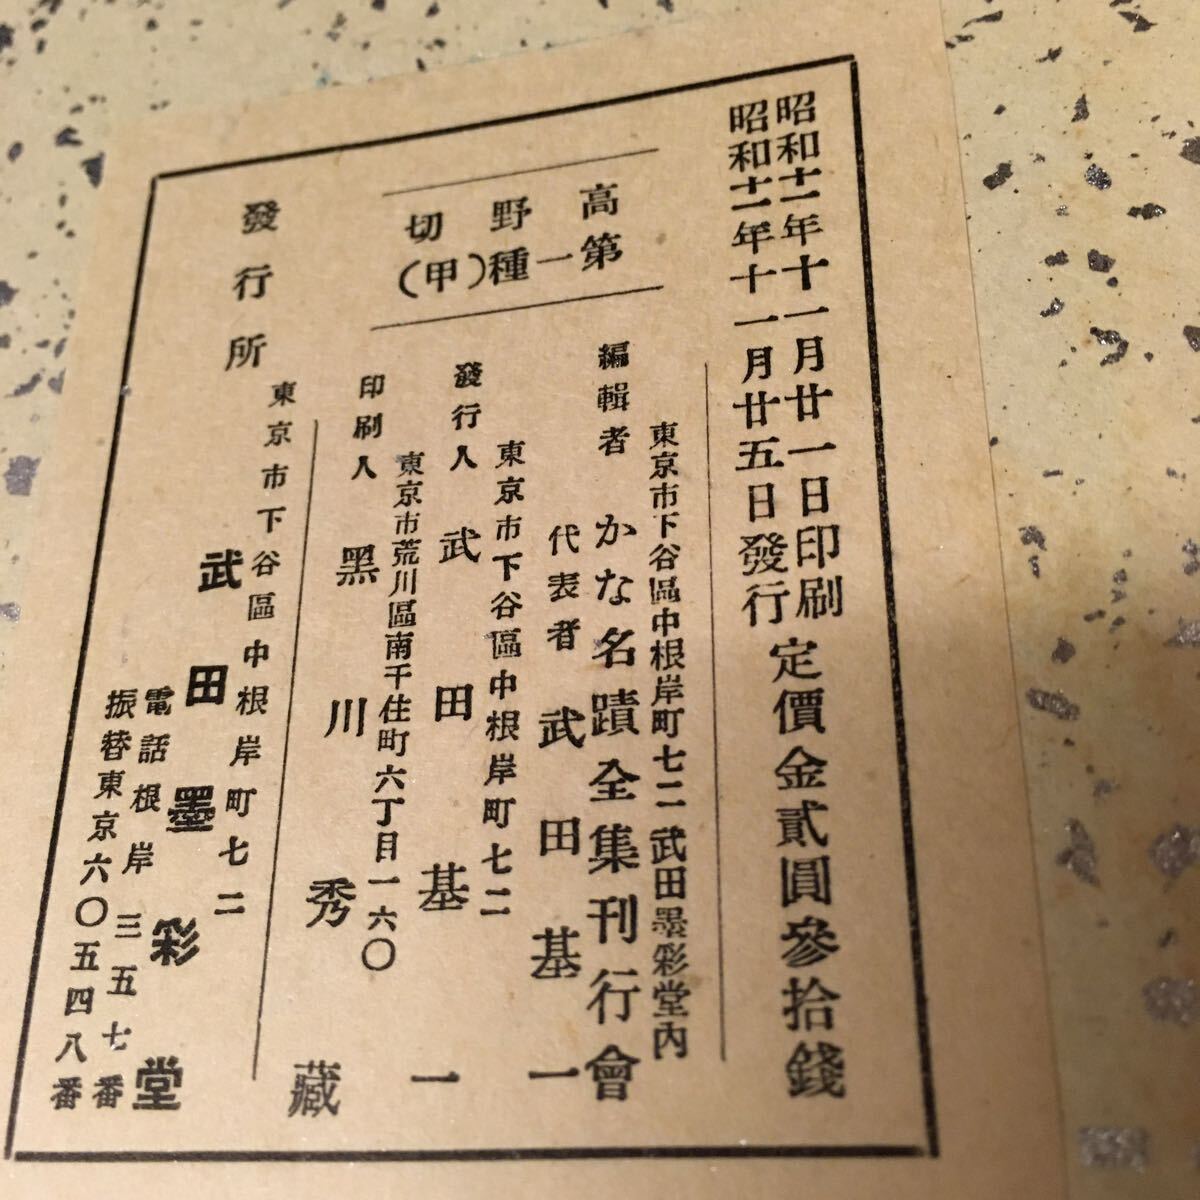 昭和十一年十一月廿一日印刷
昭和十一年十一月廿五日發行
定價金貳圓參拾錢
高野切
第一種(甲)
東京市下谷區中根岸町七二武田墨彩堂內
編輯者 かな名蹟全集刊行會
代表者 武田基一
東京市下谷區中根岸町七二
發行人 武田基一
東京市荒川區南千住町六丁目一六〇
印刷人 黑川秀藏
東京市下谷區中根岸町七二
發行所 武田墨彩堂
電話根岸三五七番
振替東京六〇五四八番